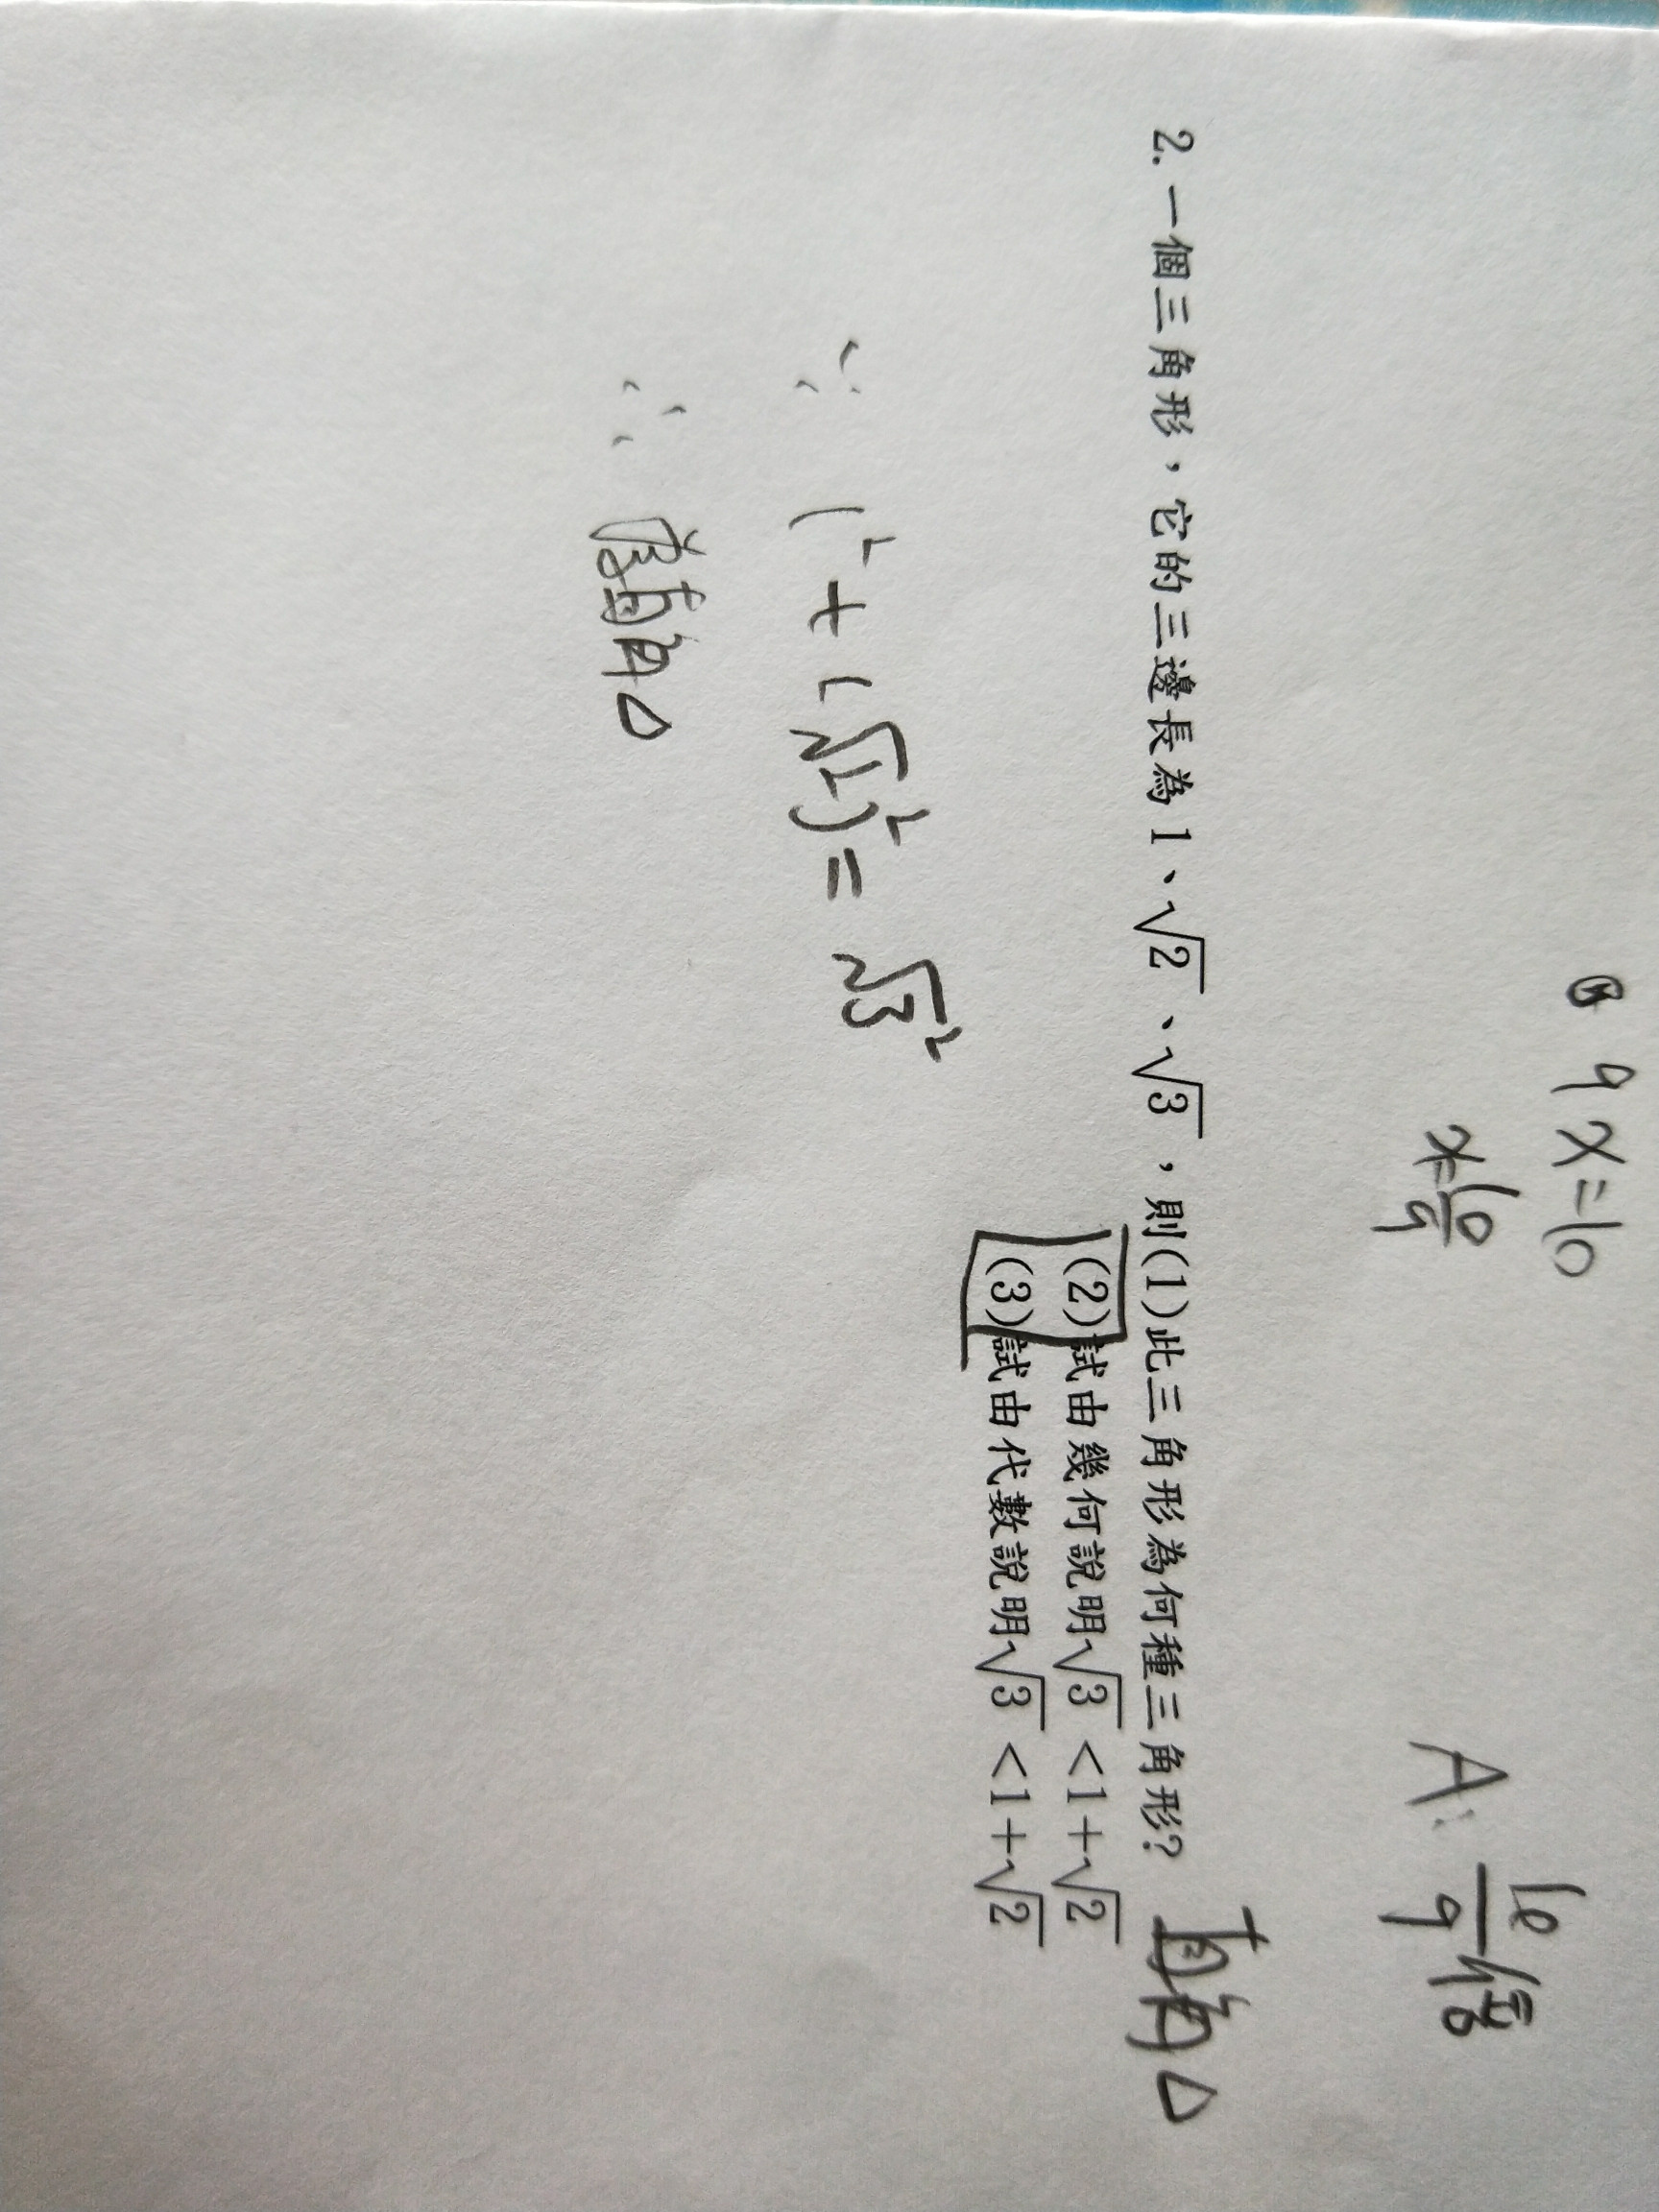 9x=10
x=10/9
A: 10/9 倍
2. 一個三角形，它的三邊長為1、√2、√3，則(1)此三角形為何種三角形? 直角△
(2)試由幾何說明√3<1+√2
(3)試由代數說明√3<1+√2
∵ 1²+(√2)²=√3²
∴ 為直角△